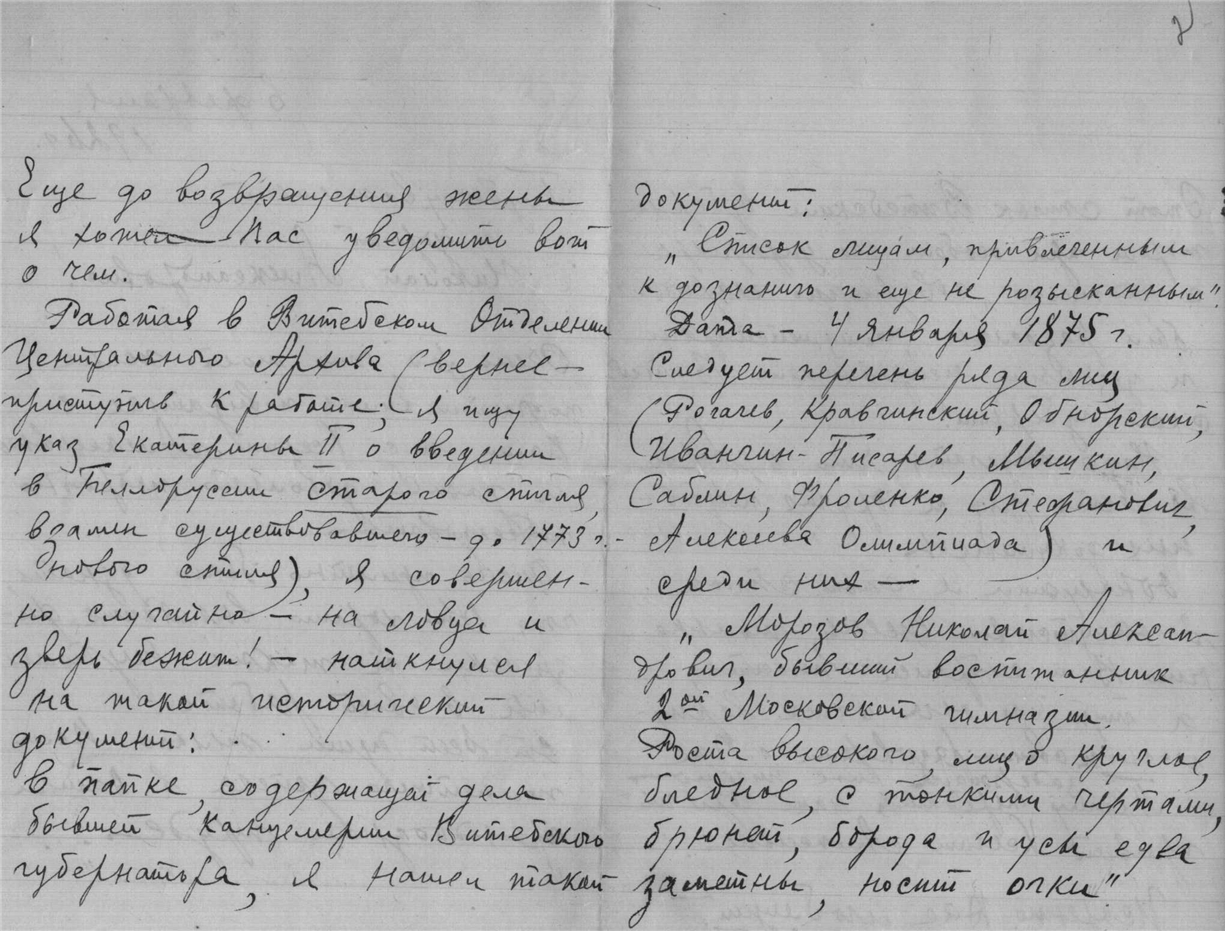 2
Еще до возвращения жены
я хотел Вас уведомить вот
о чем.
Работая в Витебском Отделении
Центрального Архива (вернее —
приступив к работе; я ищу
указ Екатерины II о введении
в Беллоруссии старого стиля,
взамен существовавшего – до 1773 г. -
нового стиля), я совершен-
но случайно – на ловца и
зверь бежит! – наткнулся
на такой исторический
документ:
в папке, содержащей дела
бывшей Канцелерии Витебского
губернатора, я нашел такой
документ:
„Список лицам, привлеченным
к дознанию и еще не розысканным".
Дата – 4 января 1875 г.
Следует перечень ряда лиц
(Рогачев, Кравчинский, Обнорский,
Иванчин-Писарев, Мышкин,
Саблин, Фроленко, Стефанович,
Алексеева Олимпиада) и
среди них —
„Морозов Николай Алексан-
дрович, бывший воспитанник
2ой Московской гимназии.
Роста высокого, лицо круглое,
бледное, с тонкими чертами,
брюнет, борода и усы едва
заметны, носит очки"